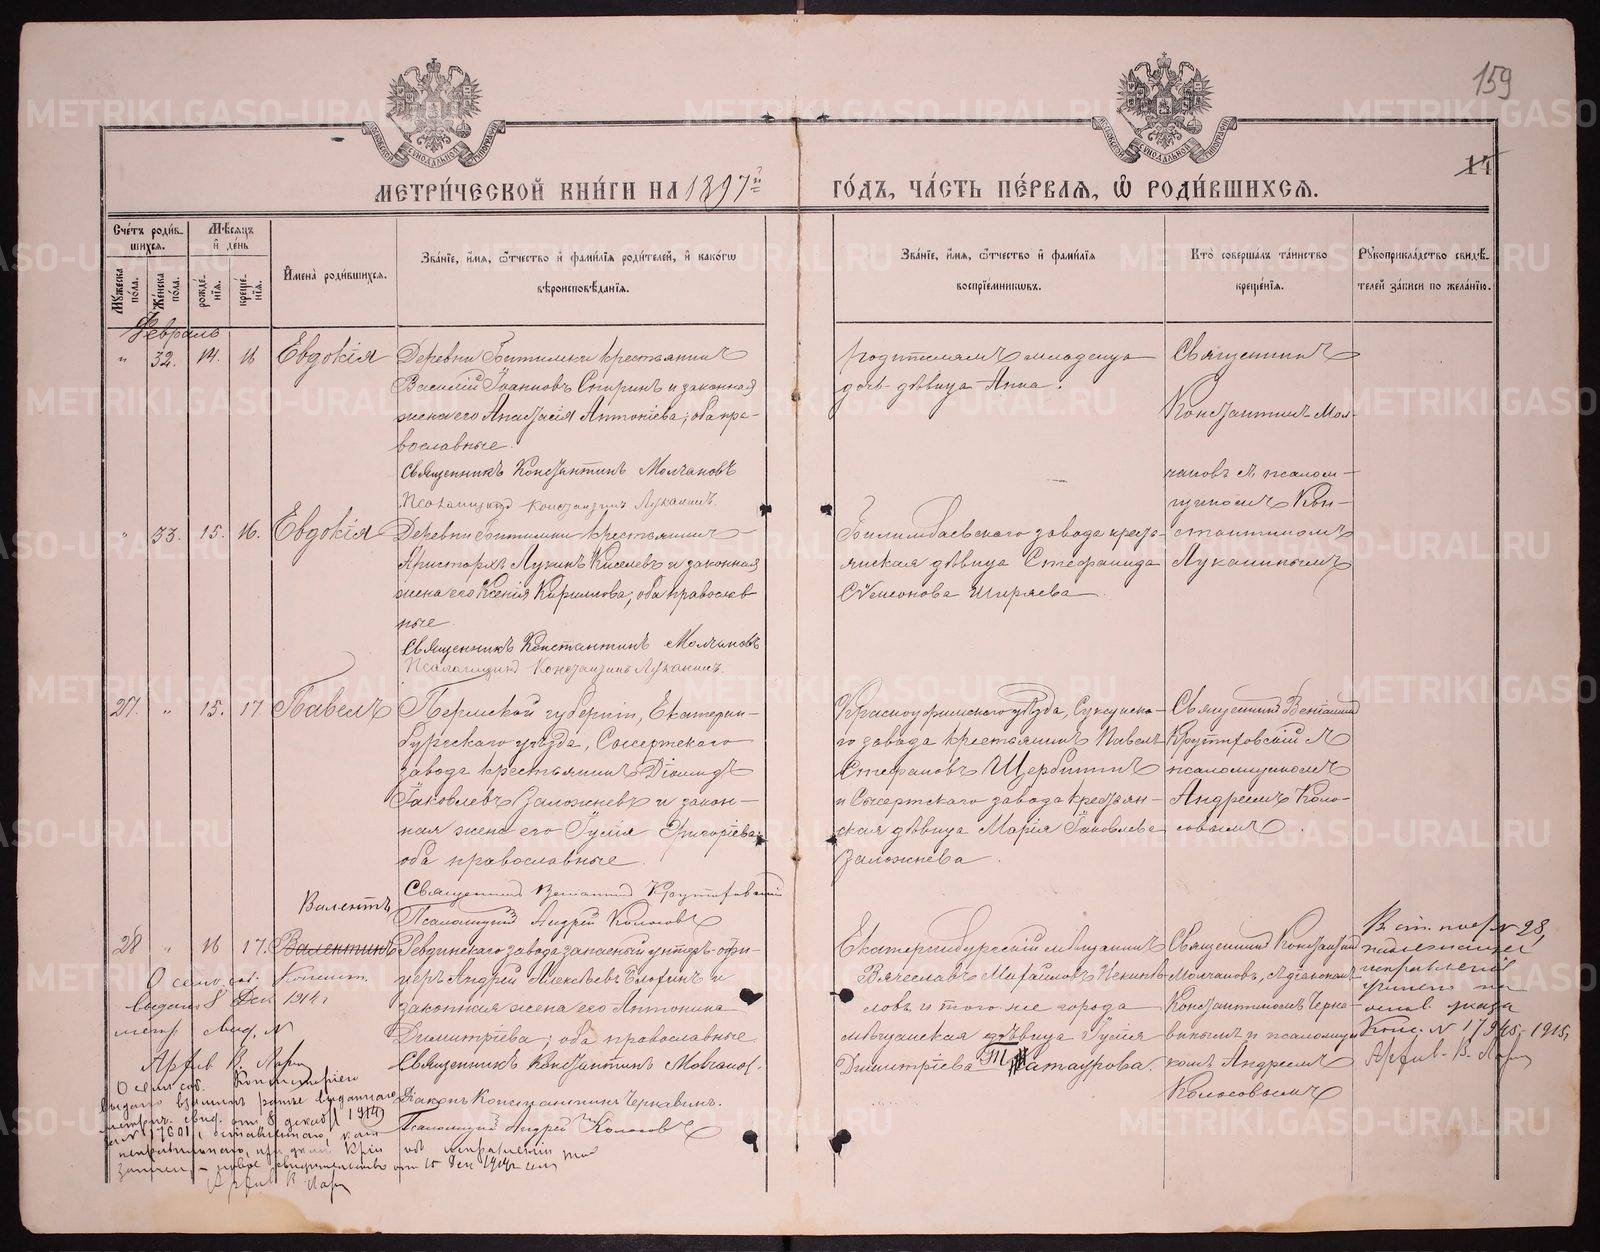 159
14
МЕТРИЧЕСКОЙ КНИГИ НА 1897й
ГОДЪ, ЧАСТЬ ПЕРВАЯ, Ѡ РОДИВШИХСЯ.
Счетъ родив-
шихся.
Мужеска
пола.
Женска
пола.
Мѣсяцъ
и день
рожде-
нія.
креще-
нія.
Имена родившихся.
Званіе, имя, ѿтчество и фамилія родителей, и какогѡ
вѣроисповѣданія.
Званіе, имя, ѿтчество и фамилія
воспріемниковъ.
Кто совершалъ таинство
крещенія.
Рукоприкладство свидѣ-
телей записи по желанію.
Февраль
" 32. 14. 16 Евдокія
Деревни Битимки крестьянинъ
Василій Іоанновъ Спиринъ и законная
жена его Анастасія Антоніева; оба пра-
вославные.
Священникъ Константинъ Молчановъ
Псаломщикъ Константинъ Луканинъ.
родителямъ младенца
дочь дѣвица Анна.
Священникъ
Константинъ Мол-
чановъ съ псалом-
щикомъ Кон-
стантиномъ
Луканинымъ
" 33. 15. 16. Евдокія
Деревни Битимки крестьянинъ
Аристархъ Лукинъ Киселевъ и законная
жена его Ксенія Кириллова; оба православ-
ные.
Священникъ Константинъ Молчановъ
Псаломщикъ Константинъ Луканинъ.
Билимбаевскаго завода кресть-
янская дѣвица Стефанида
Сѵмеонова Ширяева.
27. " 15. 17 Павелъ
Пермской губерніи, Екатерин-
бургскаго уѣзда, Сысертскаго
завода крестьянинъ Діомидъ
Іаковлевъ Заложневъ и закон-
ная жена его Іулія Григоріева;
оба православные.
Священникъ Веніаминъ Крутиховскій
Псаломщикъ Андрей Колосовъ
Красноуфимскаго уѣзда, Суксунска-
го завода крестьянинъ Павелъ
Стефановъ Щербининъ
и Сысертскаго завода крестьян-
ская дѣвица Марія Іаковлева
Заложнева.
Священникъ Веніаминъ
съ
псаломщикомъ
Андреемъ Коло-
совымъ.
Валентъ
28 " 16 17. Валентинъ
Ревдинскаго завода запасный унтеръ-офи-
церъ Андрей Алексѣевъ и
законная жена его Антонина
Димитріева; оба православные
Священникъ Константинъ Молчановъ.
Діаконъ Константинъ Чернавинъ.
Псаломщикъ Андрей Колосовъ
Екатеринбургскій мѣщанинъ
Вячеславъ Михайловъ
ловъ и того же города
мѣщанская дѣвица Іулія
Димитріева Татаурова.
Священникъ Константинъ
Молчановъ, съ діакономъ
Константиномъ Черна-
винымъ и псаломщи-
комъ Андреемъ
Колосовымъ
В ст. под N 28,
исправленій
Конс. N 17945-1915,
О сем
выдано 8 Дек 1914 г
метр свид. N
О сем
выдано
метрич. свид. от 8 декаб 1914